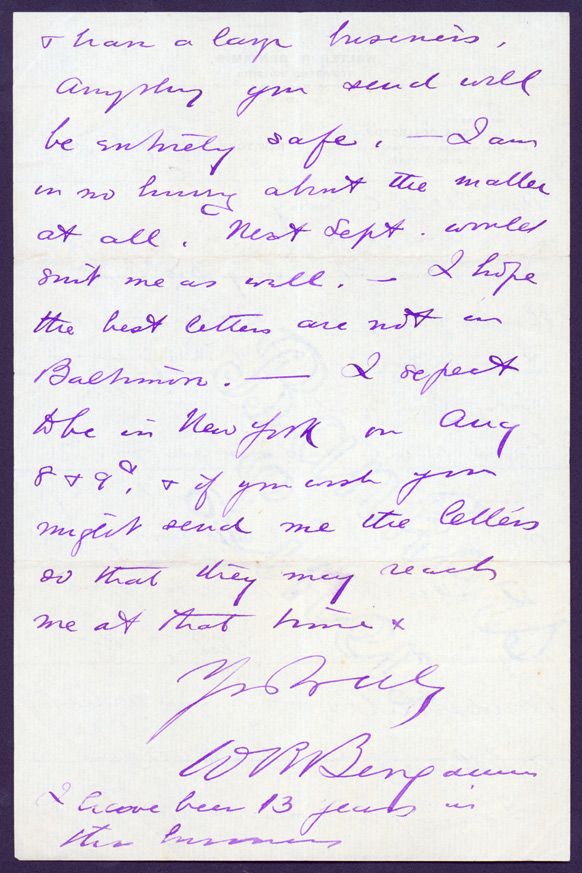 & have a large business.
Anything you send will
be entirely safe. — I am
in no hurry about the matter
at all. Next Sept. would
suit me as well. — I hope
the best letters are not in
Baltimore. — I expect
to be in New York on Aug
8 & 9th, & if you wish you
might send me the letters
so that they may reach
me at that time &
Yrs truly
W R Benjamin
I have been 13 years in
the business